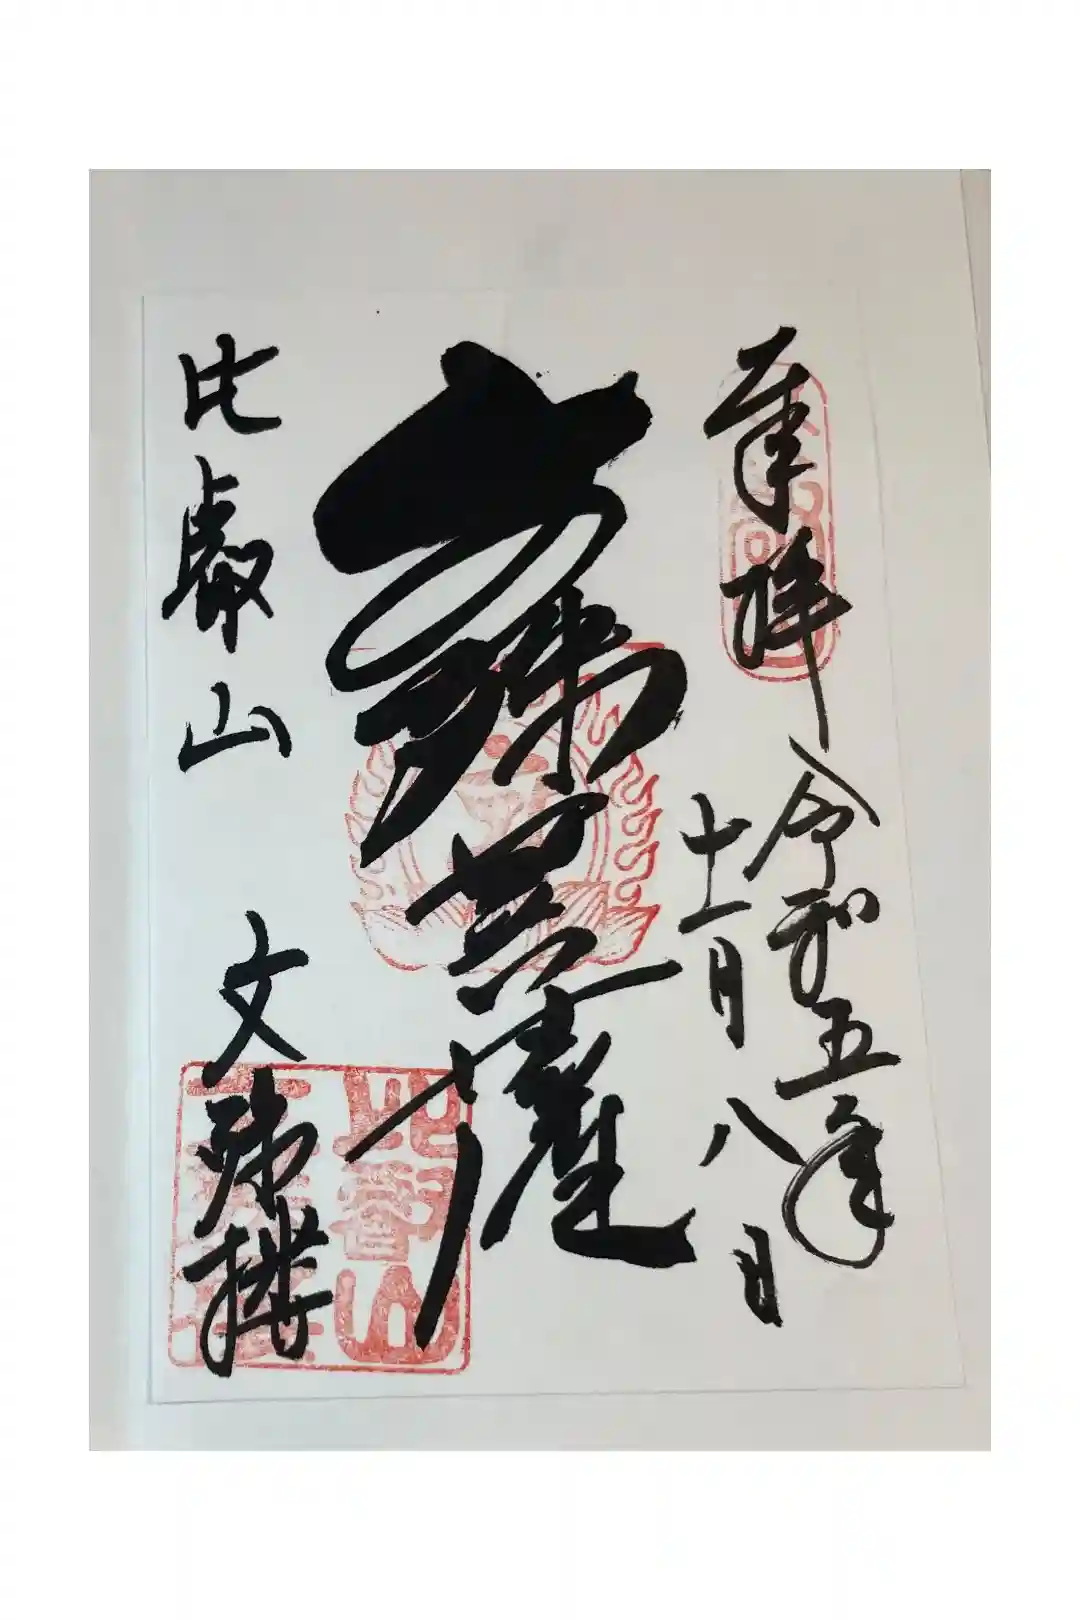 奉拝
令和五年
十一月八日
文殊菩薩
比叡山 文殊楼